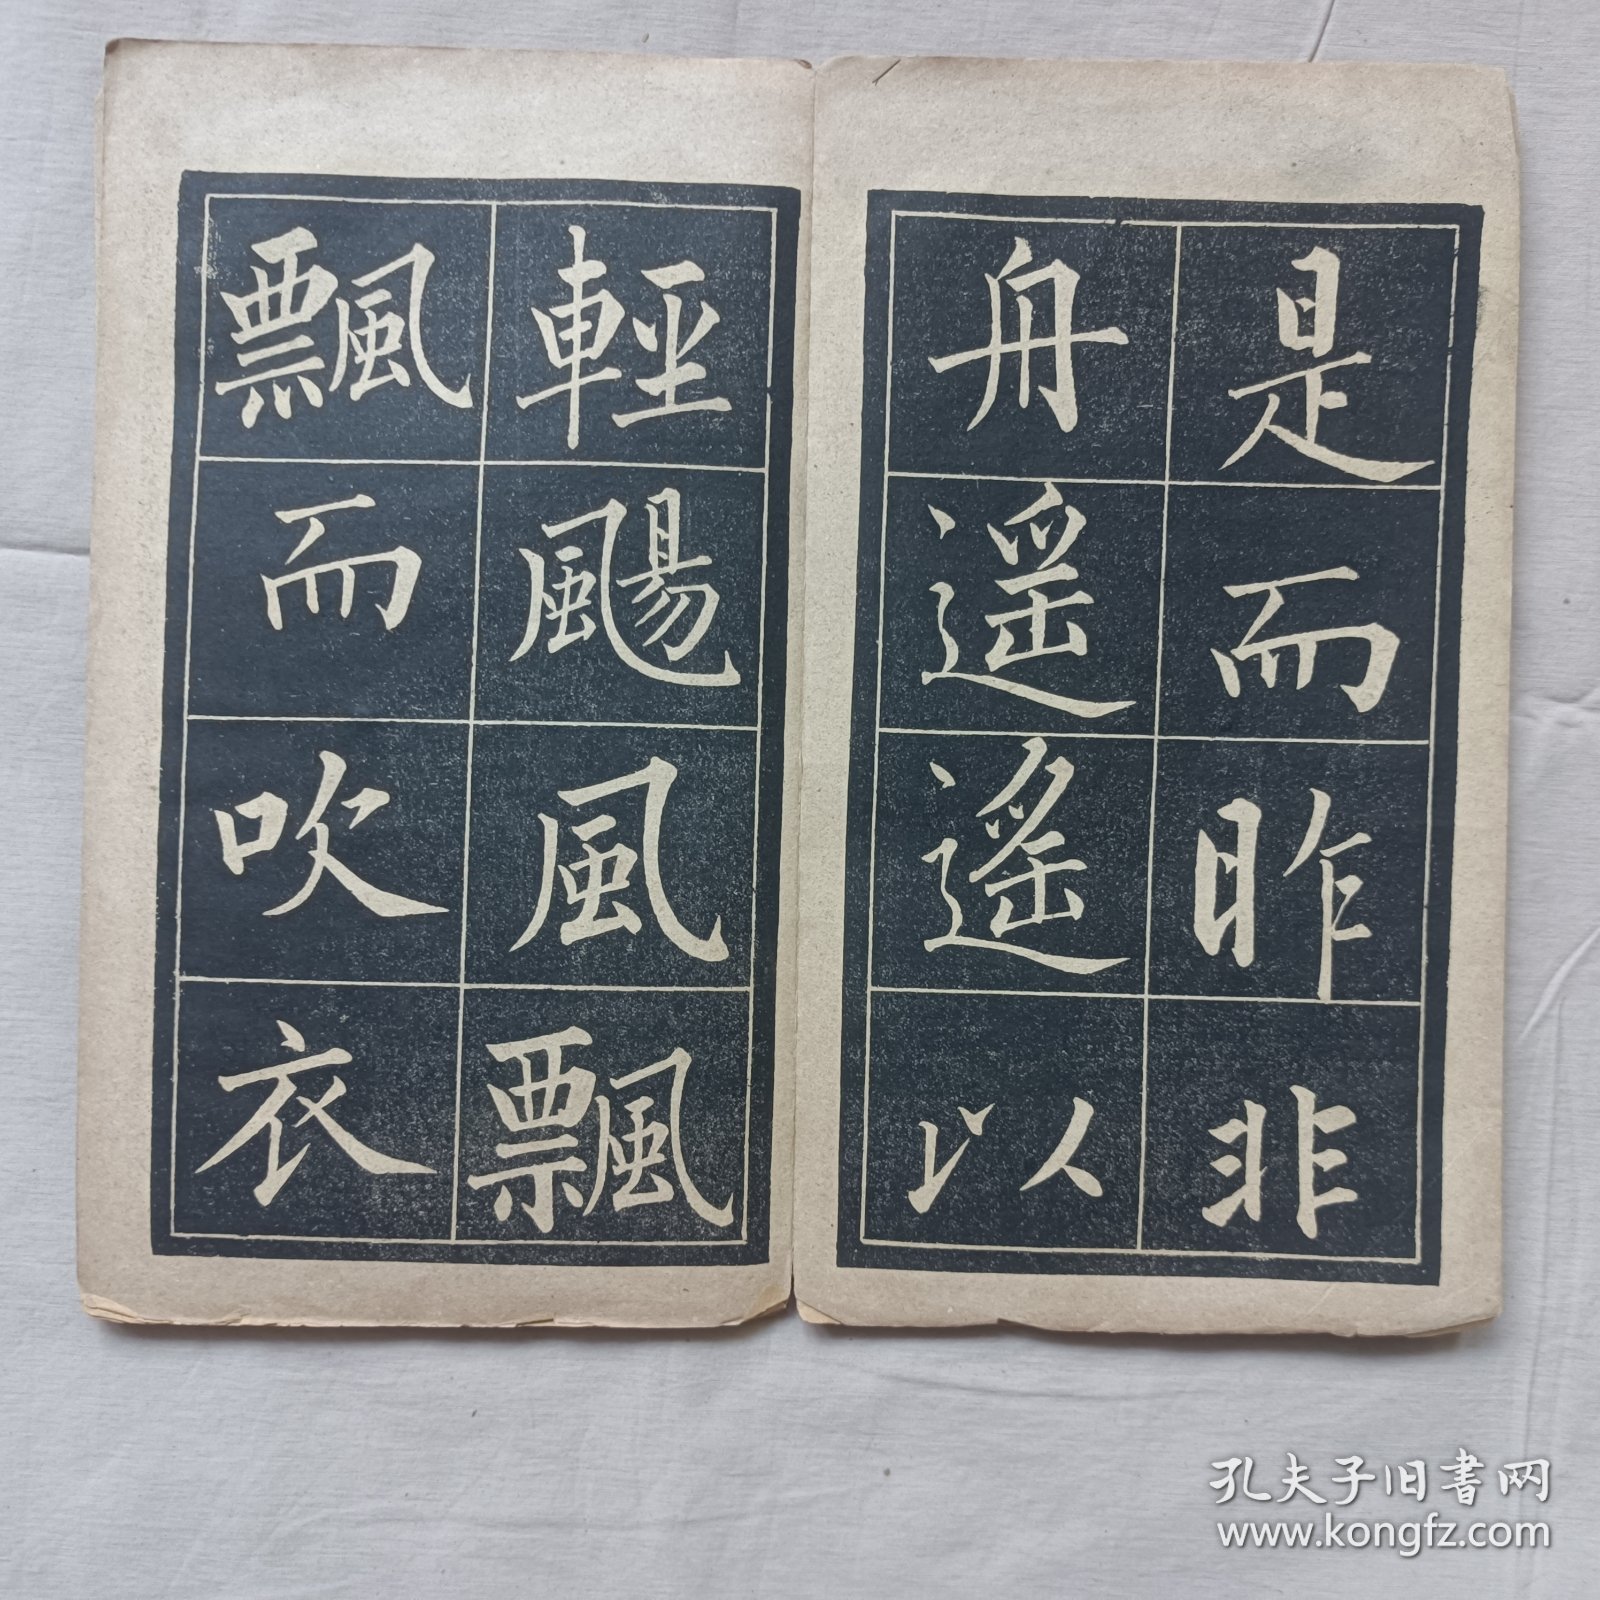 是而昨非
舟遥遥以
輕颺風飄
飄而吹衣
孔夫子旧书网
www.kongfz.com